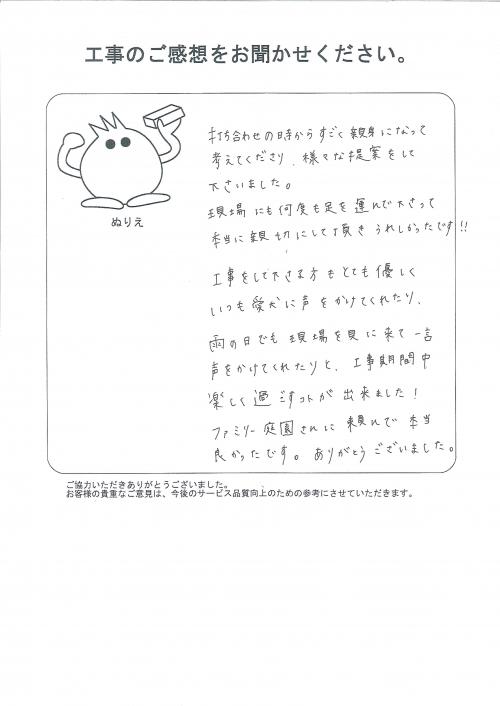 工事のご感想をお聞かせください。
打ち合わせの時からすごく親身になって
考えてくださり、様々な提案をして
下さいました。
ぬりえ
現場にも何度も足を運んで下さって
本当に親切にして頂きうれしかったです!!
工事をして下さる方もとても優しく
いつも愛犬に声をかけてくれたり、
雨の日でも現場を見に来て一言
声をかけてくれたりと、工事期間中
楽しく過ごすコトが出来ました!
ファミリー庭園さんに頼んで本当
良かったです。ありがとうございました。
ご協力いただきありがとうございました。
お客様の貴重なご意見は、今後のサービス品質向上のための参考にさせていただきます。